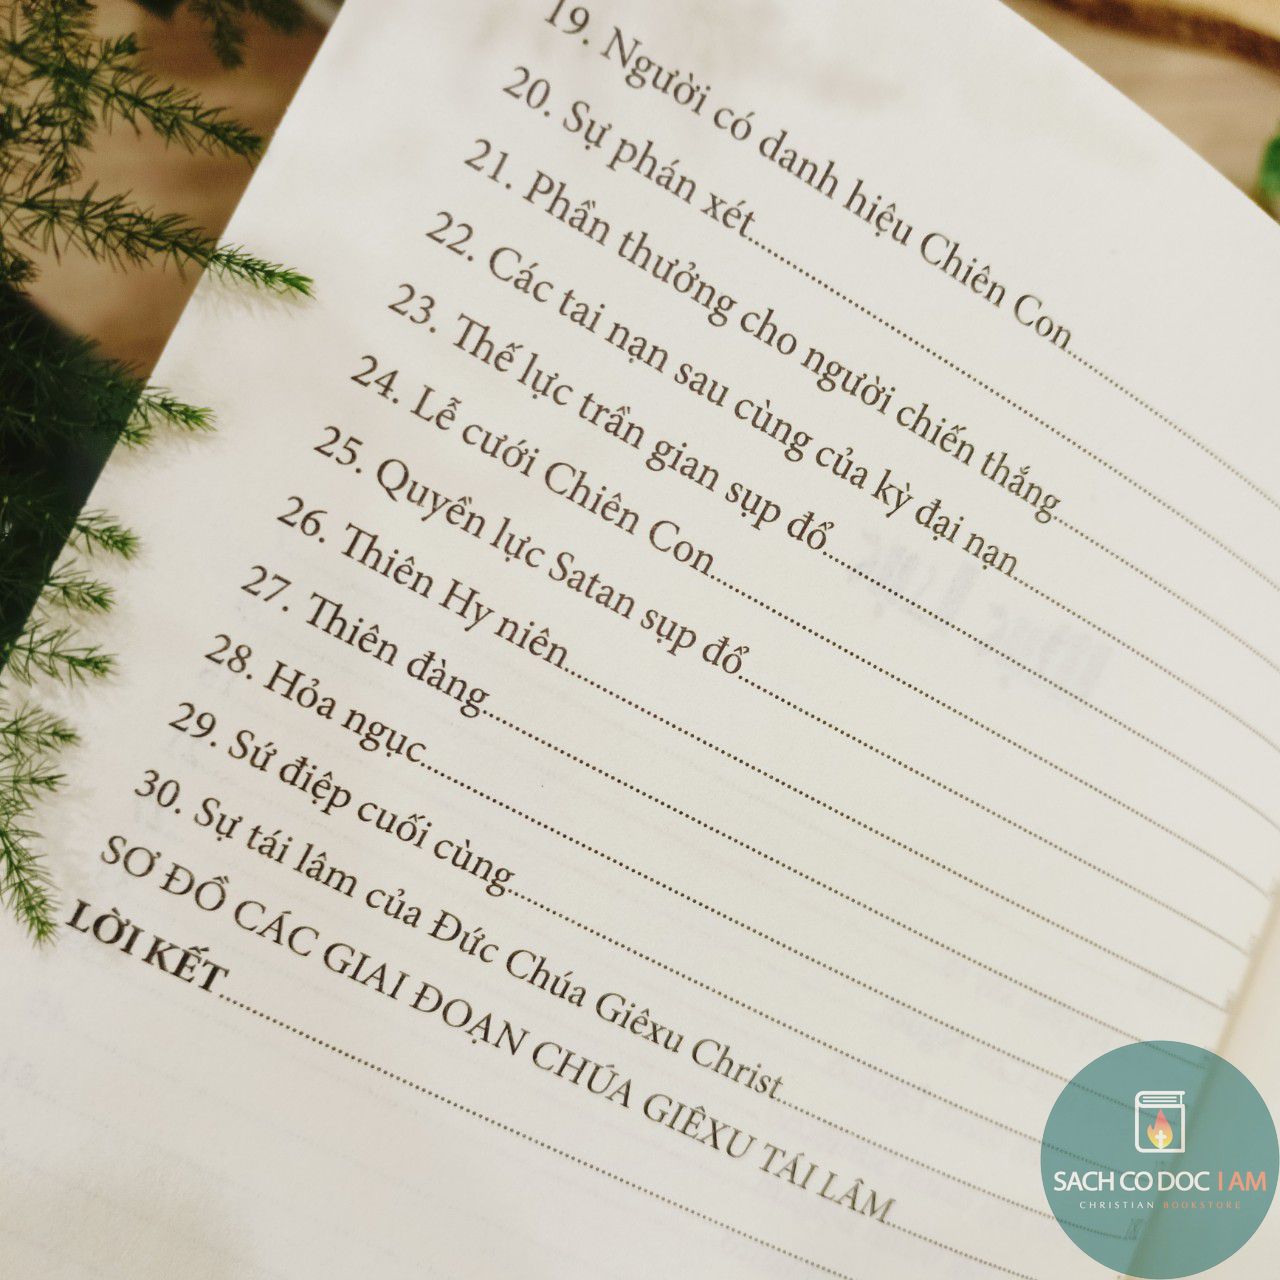 19. Người có danh hiệu Chiên Con
20. Sự phán xét
21. Phần thưởng cho người chiến thắng
22. Các tai nạn sau cùng của kỳ đại nạn
23. Thế lực trần gian sụp đổ
24. Lễ cưới Chiên Con
25. Quyền lực Satan sụp đổ
26. Thiên Hy niên
27. Thiên đàng
28. Hỏa ngục
29. Sứ điệp cuối cùng
30. Sự tái lâm của Đức Chúa Giêxu Christ
SƠ ĐỒ CÁC GIAI ĐOẠN CHÚA GIÊXU TÁI LÂM
LỜI KẾT
SACH CO DOC I AM
CHRISTIAN BOOKSTORE